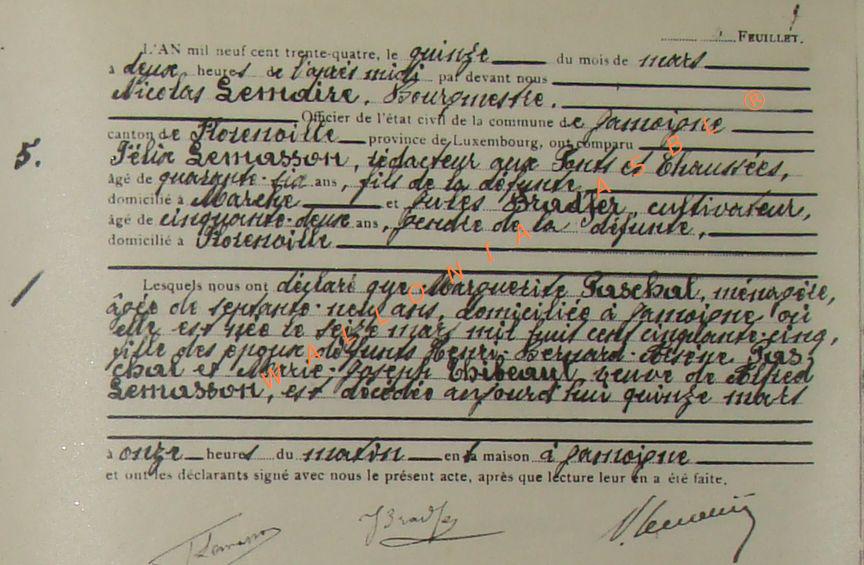 FEUILLET.
L'AN mil neuf cent trente-quatre, le quinze du mois de mars
à deux heures de l'après midi par devant nous
Nicolas Lemoire, Bourgmestre.
Officier de l'état civil de la commune de Jamoigne
canton de Florenville province de Luxembourg, ont comparu
5.
Félix Lemasson, rédacteur aux Ponts et Chaussées,
âgé de quarante-six ans, fils de la défunte
domicilié à Marche et Jules Bradfer, cultivateur,
âgé de cinquante-deux ans, gendre de la défunte,
domicilié à Florenville
Lesquels nous ont déclaré que Marguerite Paschal, ménagère,
âgée de septante-neuf ans, domiciliée à Jamoigne où
elle est née le seize mars mil huit cent cinquante-cinq,
fille des époux défunts Henri-Bernard-Arsène Pas
chal et Marie-Joseph Thibeaut, veuve de Alfred
Lemasson, est décédée aujourd'hui quinze mars
à onze heures du matin en sa maison à Jamoigne
et ont les déclarants signé avec nous le présent acte, après que lecture leur en a été faite.
JBradfer
WALLONIA ASBL ®